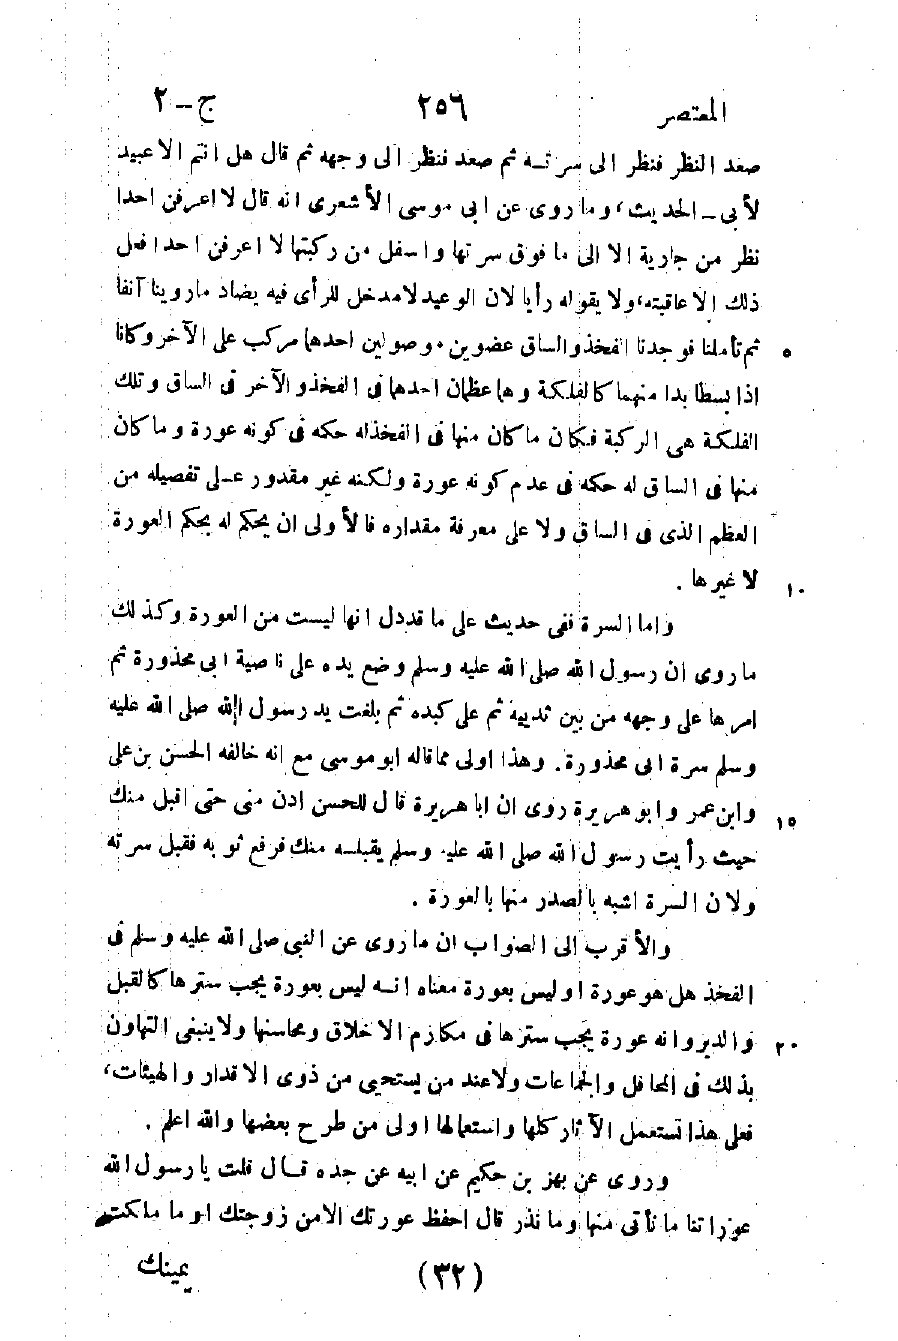 المعتصر ٢٥٦ ج – ٢
صعد النظر فنظر الى سرتـه ثم صعد فنظر الى وجهه ثم قال هل انتم الا عبيد
لأبى – الحديث، وما روى عن ابى موسى الأشعرى انه قال لا اعرفن احدا
نظر من جارية الا الى ما فوق سرتها واسفل من ركبتها لا اعرفن احدا فعل
ذلك الا عاقبته، ولا يقوله رأيا لان الوعيد لا مدخل للرأى فيه يضاد ما روينا آنفا
ثم تأملنا فوجدنا الفخذ والساق عضوين موصولين احدهما مركب على الآخر وكانا ٥
اذا بسطا بدا منهما كالفلكة وهما عظمان احدهما فى الفخذ والآخر فى الساق وتلك
الفلكة هى الركبة فكان ما كان منها فى الفخذ له حكمه فى كونه عورة وما كان
منها فى الساق له حكمه فى عدم كونه عورة ولكنه غير مقدور عـلى تفصيله من
العظم الذى فى الساق ولا على معرفة مقداره فالأولى ان يحكم له بحكم العورة
لا غيرها . ١٠
واما السرة ففى حديث على ما قد دل انها ليست من العورة وكذلك
ما روى ان رسول الله صلى الله عليه وسلم وضع يده على ناصية ابى محذورة ثم
امرها على وجهه من بين ثدييه ثم على كبده ثم بلغت يد رسول الله صلى الله عليه
وسلم سرة ابى محذورة. وهذا اولى مما قاله ابو موسى مع انه خالفه الحسن بن على
وابن عمر وابو هريرة روى ان ابا هريرة قال للحسن ادن منى حتى اقبل منك ١٥
حيث رأيت رسول الله صلى الله عليه وسلم يقبلـه منك فرفع ثوبه فقبل سرته
ولان السرة اشبه بالصدر منها بالعورة .
والأقرب الى الصواب ان ما روى عن النبى صلى الله عليه وسلم فى
الفخذ هل هو عورة او ليس بعورة معناه انـه ليس بعورة يجب سترها كالقبل
والدبر وانه عورة يجب سترها فى مكارم الاخلاق ومحاسنها ولا ينبغى التهاون ٢٠
بذلك فى المحافل والجماعات ولا عند من يستحيى من ذوى الاقدار والهيئات،
فعلى هذا تستعمل الآثار كلها واستعمالها اولى من طرح بعضها والله اعلم .
وروى عن بهز بن حكيم عن ابيه عن جده قـال قلت يا رسول الله
عوراتنا ما نأتى منها وما نذر قال احفظ عورتك الا من زوجتك او ما ملكت
يمينك
(٣٢)